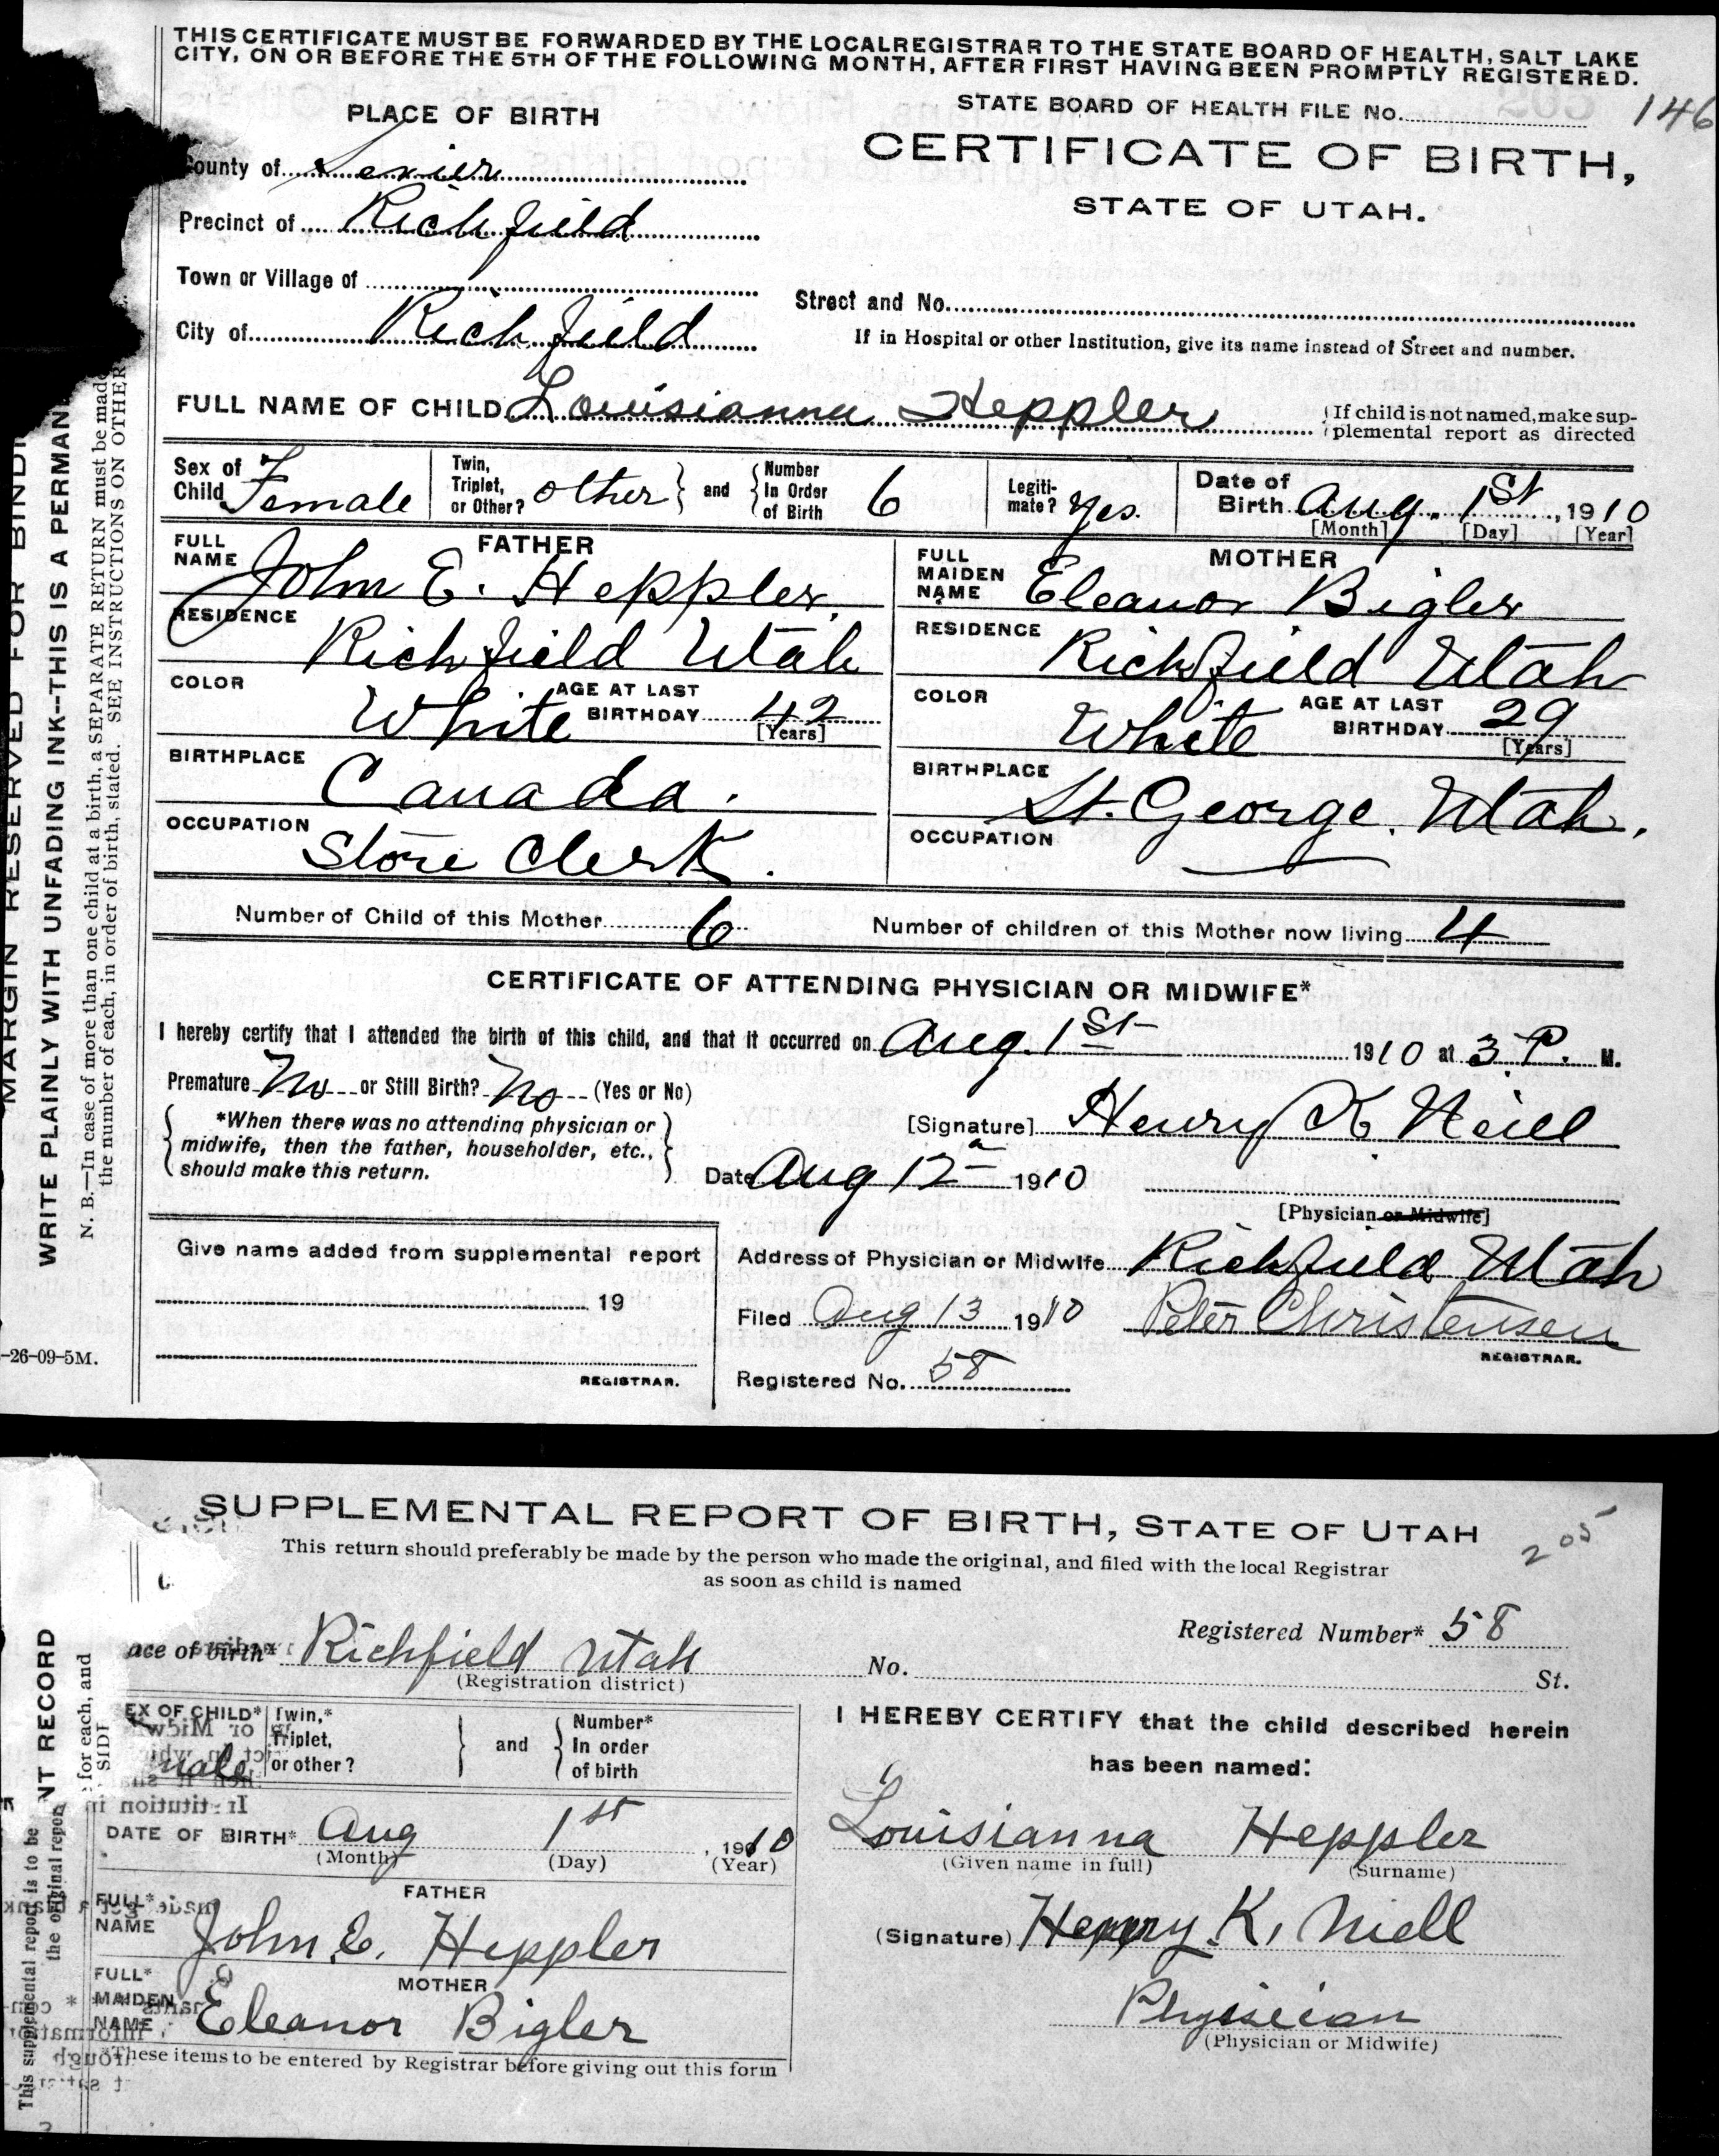 THIS CERTIFICATE MUST BE FORWARDED BY THE LOCAL REGISTRAR TO THE STATE BOARD OF HEALTH, SALT LAKE
CITY, ON OR BEFORE THE 5TH OF THE FOLLOWING MONTH, AFTER FIRST HAVING BEEN PROMPTLY REGISTERED.
PLACE OF BIRTH
STATE BOARD OF HEALTH FILE No. 146
CERTIFICATE OF BIRTH,
STATE OF UTAH.
County of Sevier
Precinct of Richfield
Town or Village of
City of Richfield
Street and No.
If in Hospital or other Institution, give its name instead of Street and number.
FULL NAME OF CHILD Louisianna Heppler
If child is not named, make sup-
plemental report as directed
Sex of Child Female
Twin, Triplet, or Other? other and Number In Order of Birth 6
Legiti-mate? Yes.
Date of Birth Aug. 1st, 1910
[Month] [Day] [Year]
FATHER
FULL NAME John E. Heppler.
RESIDENCE Richfield Utah
COLOR White AGE AT LAST BIRTHDAY 42 [Years]
BIRTHPLACE Canada.
OCCUPATION Store Clerk.
MOTHER
FULL MAIDEN NAME Eleanor Bigler
RESIDENCE Richfield Utah
COLOR White AGE AT LAST BIRTHDAY 29 [Years]
BIRTHPLACE St. George, Utah.
OCCUPATION
Number of Child of this Mother 6 Number of children of this Mother now living 4
CERTIFICATE OF ATTENDING PHYSICIAN OR MIDWIFE*
I hereby certify that I attended the birth of this child, and that it occurred on Aug. 1st 1910 at 3 P. M.
Premature No or Still Birth? No (Yes or No)
*When there was no attending physician or
midwife, then the father, householder, etc.,
should make this return.
[Signature] Henry K Neill
Date Aug 12 1910
[Physician or Midwife]
Give name added from supplemental report
19
REGISTRAR.
Address of Physician or Midwife Richfield Utah
Filed Aug 13 1910 Peter Christensen
REGISTRAR.
Registered No. 58
-26-09-5M.
MARGIN RESERVED FOR BINDI
WRITE PLAINLY WITH UNFADING INK--THIS IS A PERMAN
N. B.—In case of more than one child at a birth, a SEPARATE RETURN must be made
the number of each, in order of birth, stated. SEE INSTRUCTIONS ON OTHER
SUPPLEMENTAL REPORT OF BIRTH, STATE OF UTAH
205
This return should preferably be made by the person who made the original, and filed with the local Registrar
as soon as child is named
Registered Number* 58
ace of birth* Richfield Utah No. St.
(Registration district)
EX OF CHILD* male
Twin,* Triplet, or other? and Number* In order of birth
DATE OF BIRTH* Aug 1st, 1910
(Month) (Day) (Year)
FATHER
FULL* NAME John E. Heppler
MOTHER
FULL* MAIDEN NAME Eleanor Bigler
*These items to be entered by Registrar before giving out this form
I HEREBY CERTIFY that the child described herein
has been named:
Louisianna Heppler
(Given name in full) (Surname)
(Signature) Henry K. Niell
Physician
(Physician or Midwife)
NT RECORD
for each, and
SIDE
This supplemental report is to be
the original repor